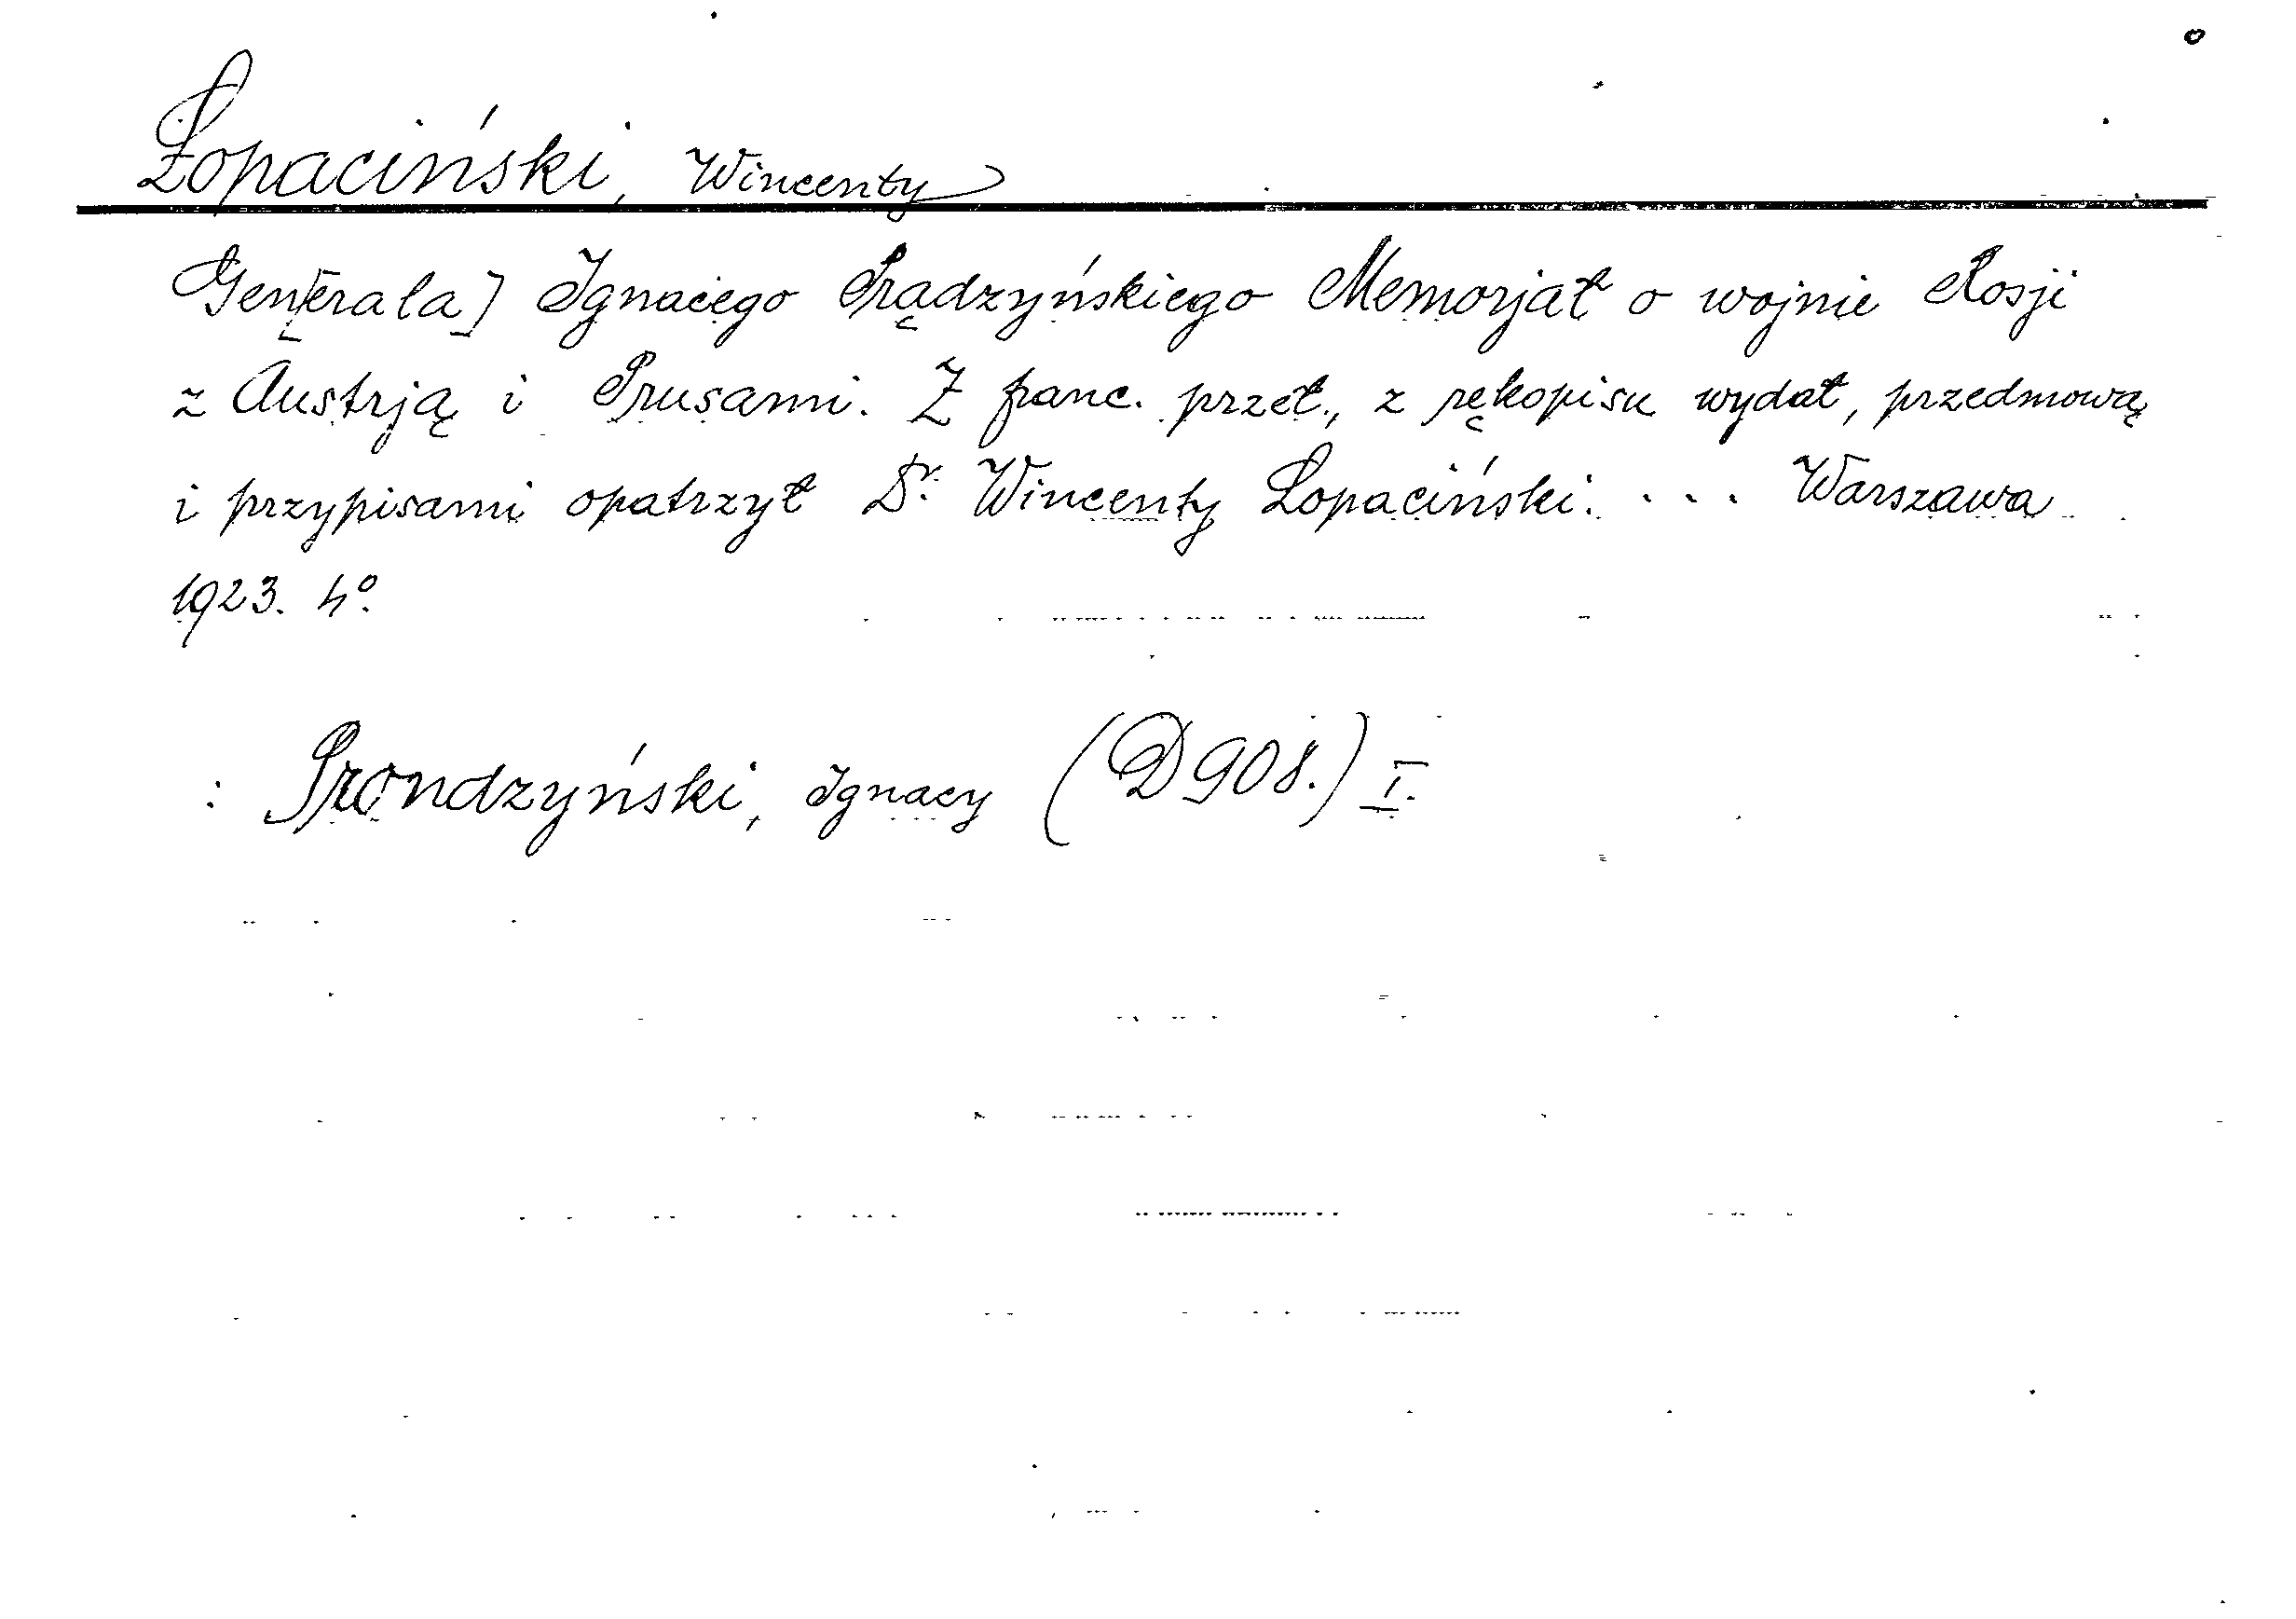 Łopaciński, Wincenty
Gen[erala] Ignacego Prądzyńskiego Memorjał o wojnie Rosji
z Austrją i Prusami. Z franc. przeł., z rękopisu wydał, przedmową
i przypisami opatrzył Dr. Wincenty Łopaciński. ... Warszawa
1923. 4°.
: Prondzyński, Ignacy (D 908.) I.